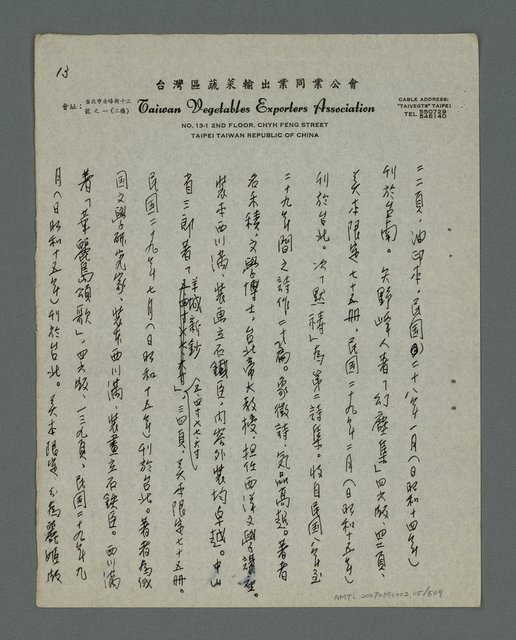 13
台灣區蔬菜輸出業同業公會
會址：台北市赤峰街十三號之一(二樓)
Taiwan Vegetables Exporters Association
NO. 13-1 2ND FLOOR. CHYH FENG STREET
TAIPEI TAIWAN REPUBLIC OF CHINA
CABLE ADDRESS:
"TAIVEGTS" TAIPEI
TEL 550729
546140
二二頁，油印本，民國二十八年一月（日昭和十四年）
刊於台南。矢野峰人著「幻塵集」四六版，四二頁，
美本限定七十五冊，民國二十九年二月（日昭和十五年）
刊於台北。次「黙禱」為第二詩集。收自民國八年至
二十九年間之詩作二十篇。象徵詩，気品高超。著者
名禾積，文學博士，台北帝大教授，担任西洋文學講座。
裝本西川滿，裝畫立石鐵臣，內容外裝均卓越。中山
省三郎著「羊城新鈔」（五・四寸×七・六寸），三四頁，美本限定七十五冊。
民國二十九年七月（日昭和十五年）刊於台北。著者為俄
国文學研究家，裝本西川滿，裝畫立石鉄臣。西川滿
著「華麗島頌歌」，四六版，一三九頁，民國二十九年九
月（日昭和十五年）刊於台北。美本限定分為麗姬版
NMTL 20070590002 115/509